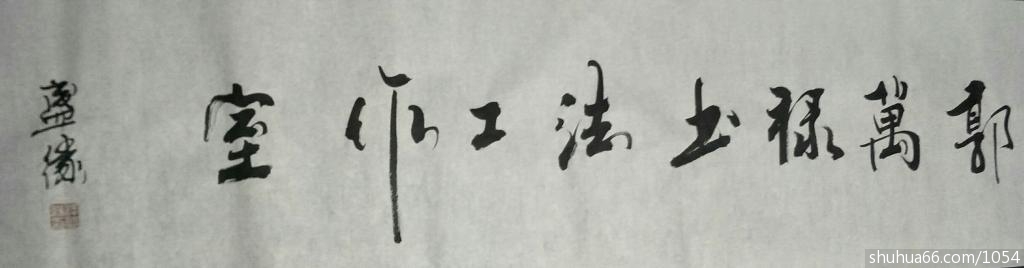 郭萬祿书法工作室
shuhua66.com/1054